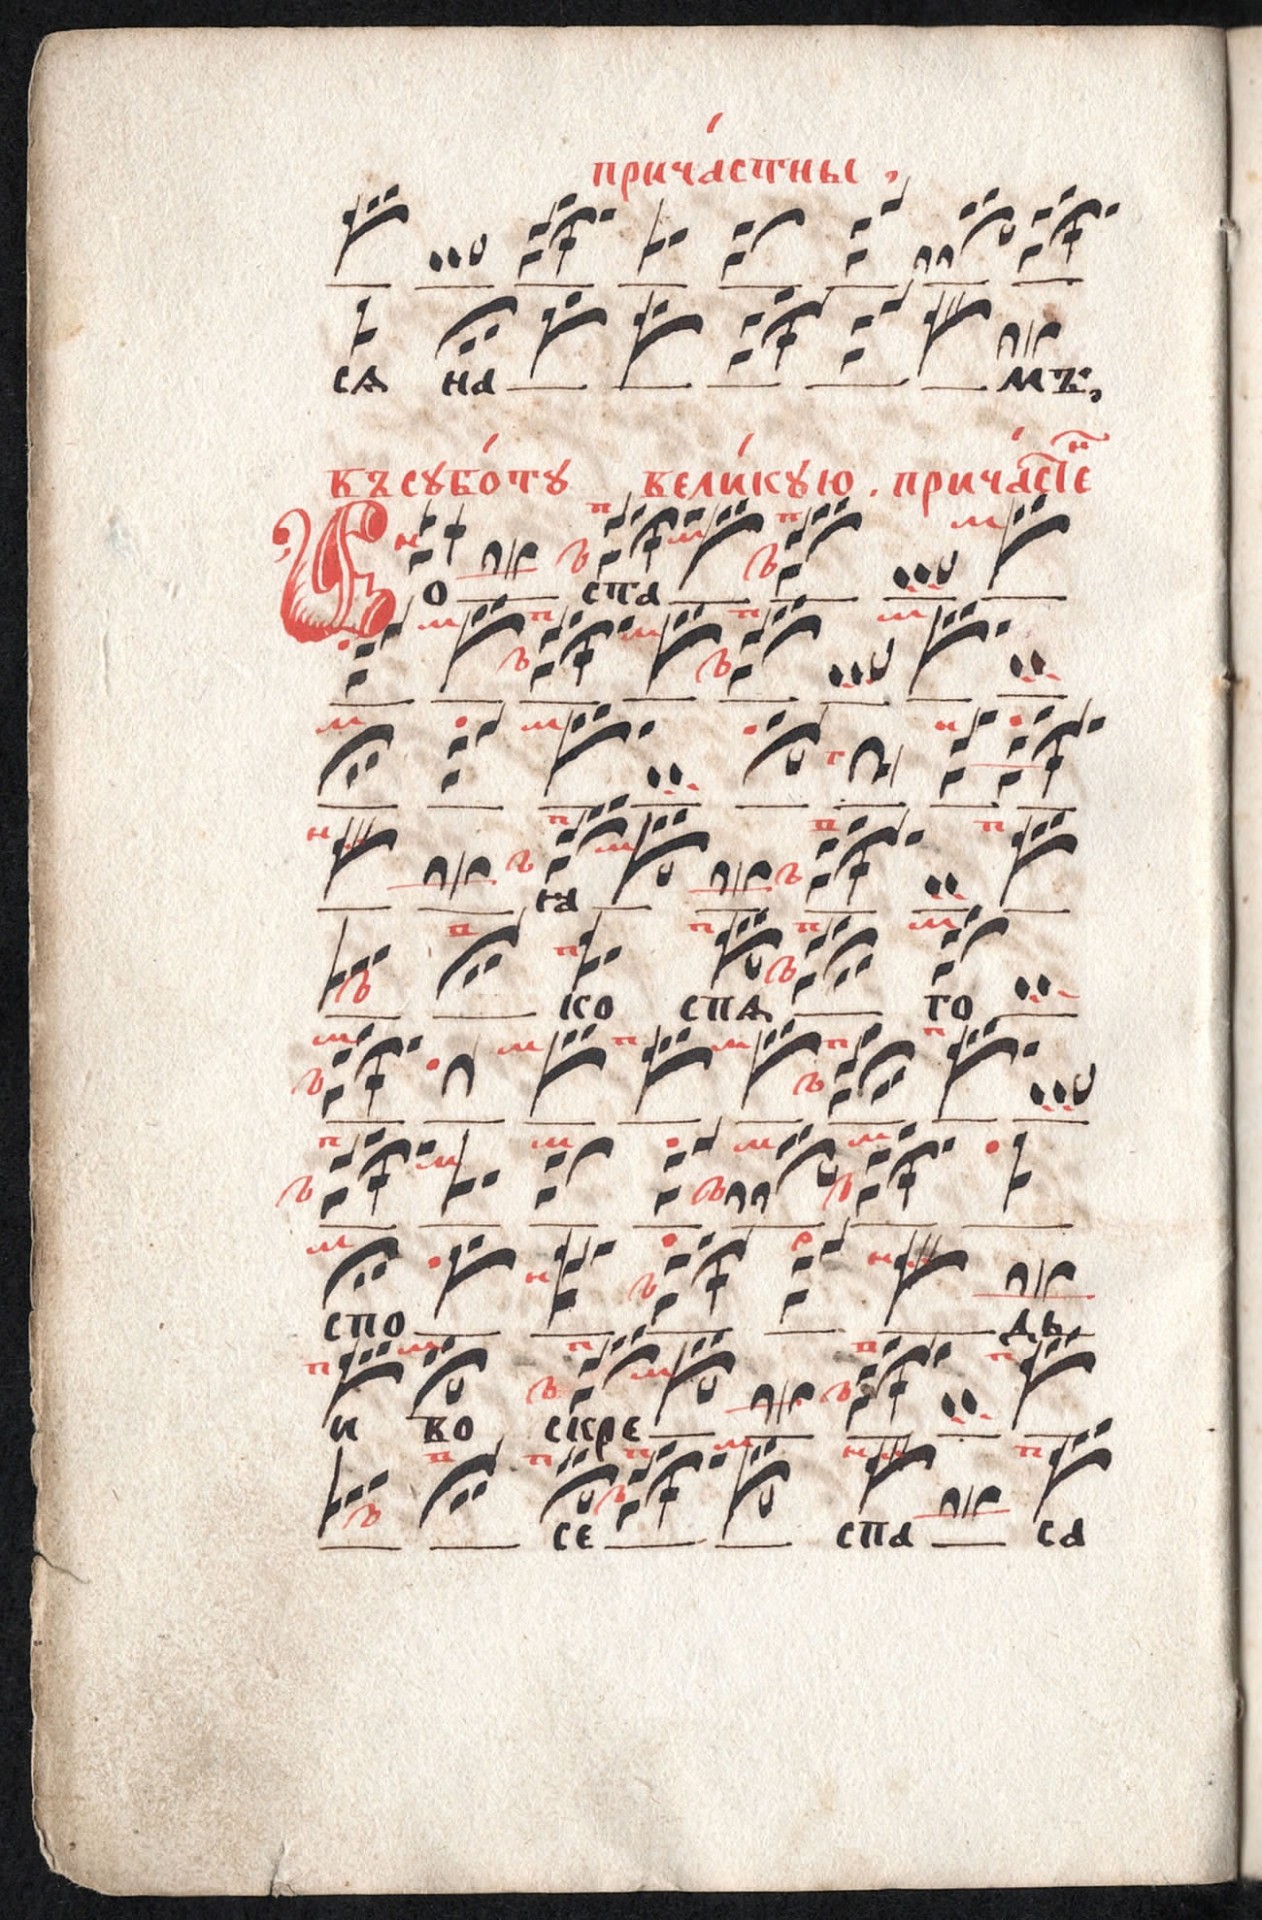 прича́стны ,
сѧ на мъ,
въ сꙋбо́тꙋ вели́кꙋю . прича́стїе
о спа
на
ко спѧ го
спо дь,
и во скре
се спа са